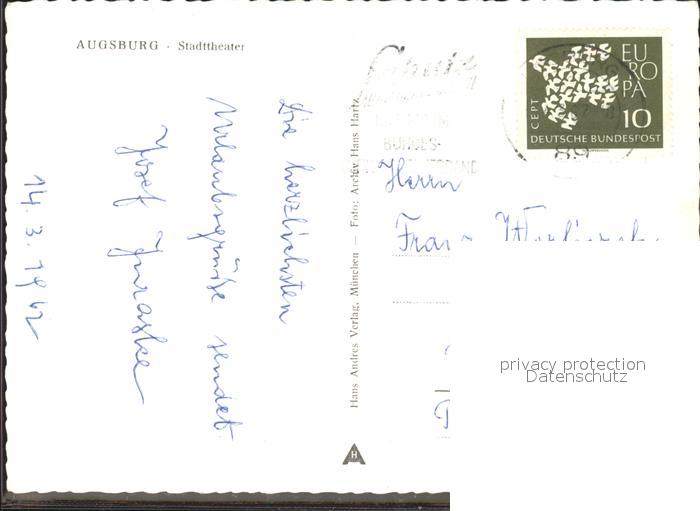 AUGSBURG · Stadttheater
Die herzlichsten
Urlaubsgrüße sendet
Josef Juraske
14.3.1962
Hans Andres Verlag, München — Foto: Archiv Hans Hartz
H
BUNDES-
EU
RO
PA
CEPT
10
DEUTSCHE BUNDESPOST
89
Herrn
privacy protection
Datenschutz